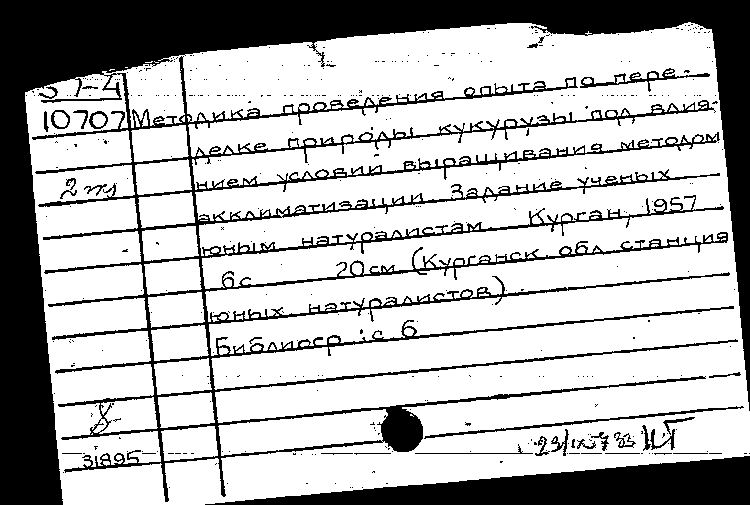 57-4
10707 Методика проведения опыта по пере-
делке природы кукурузы под влия-
нием условий выращивания методом
акклиматизации. Задание ученых
юным натуралистам. Курган, 1957.
6с 20см (Курганск. обл. станция
юных натуралистов).
Библиогр: с 6
31895